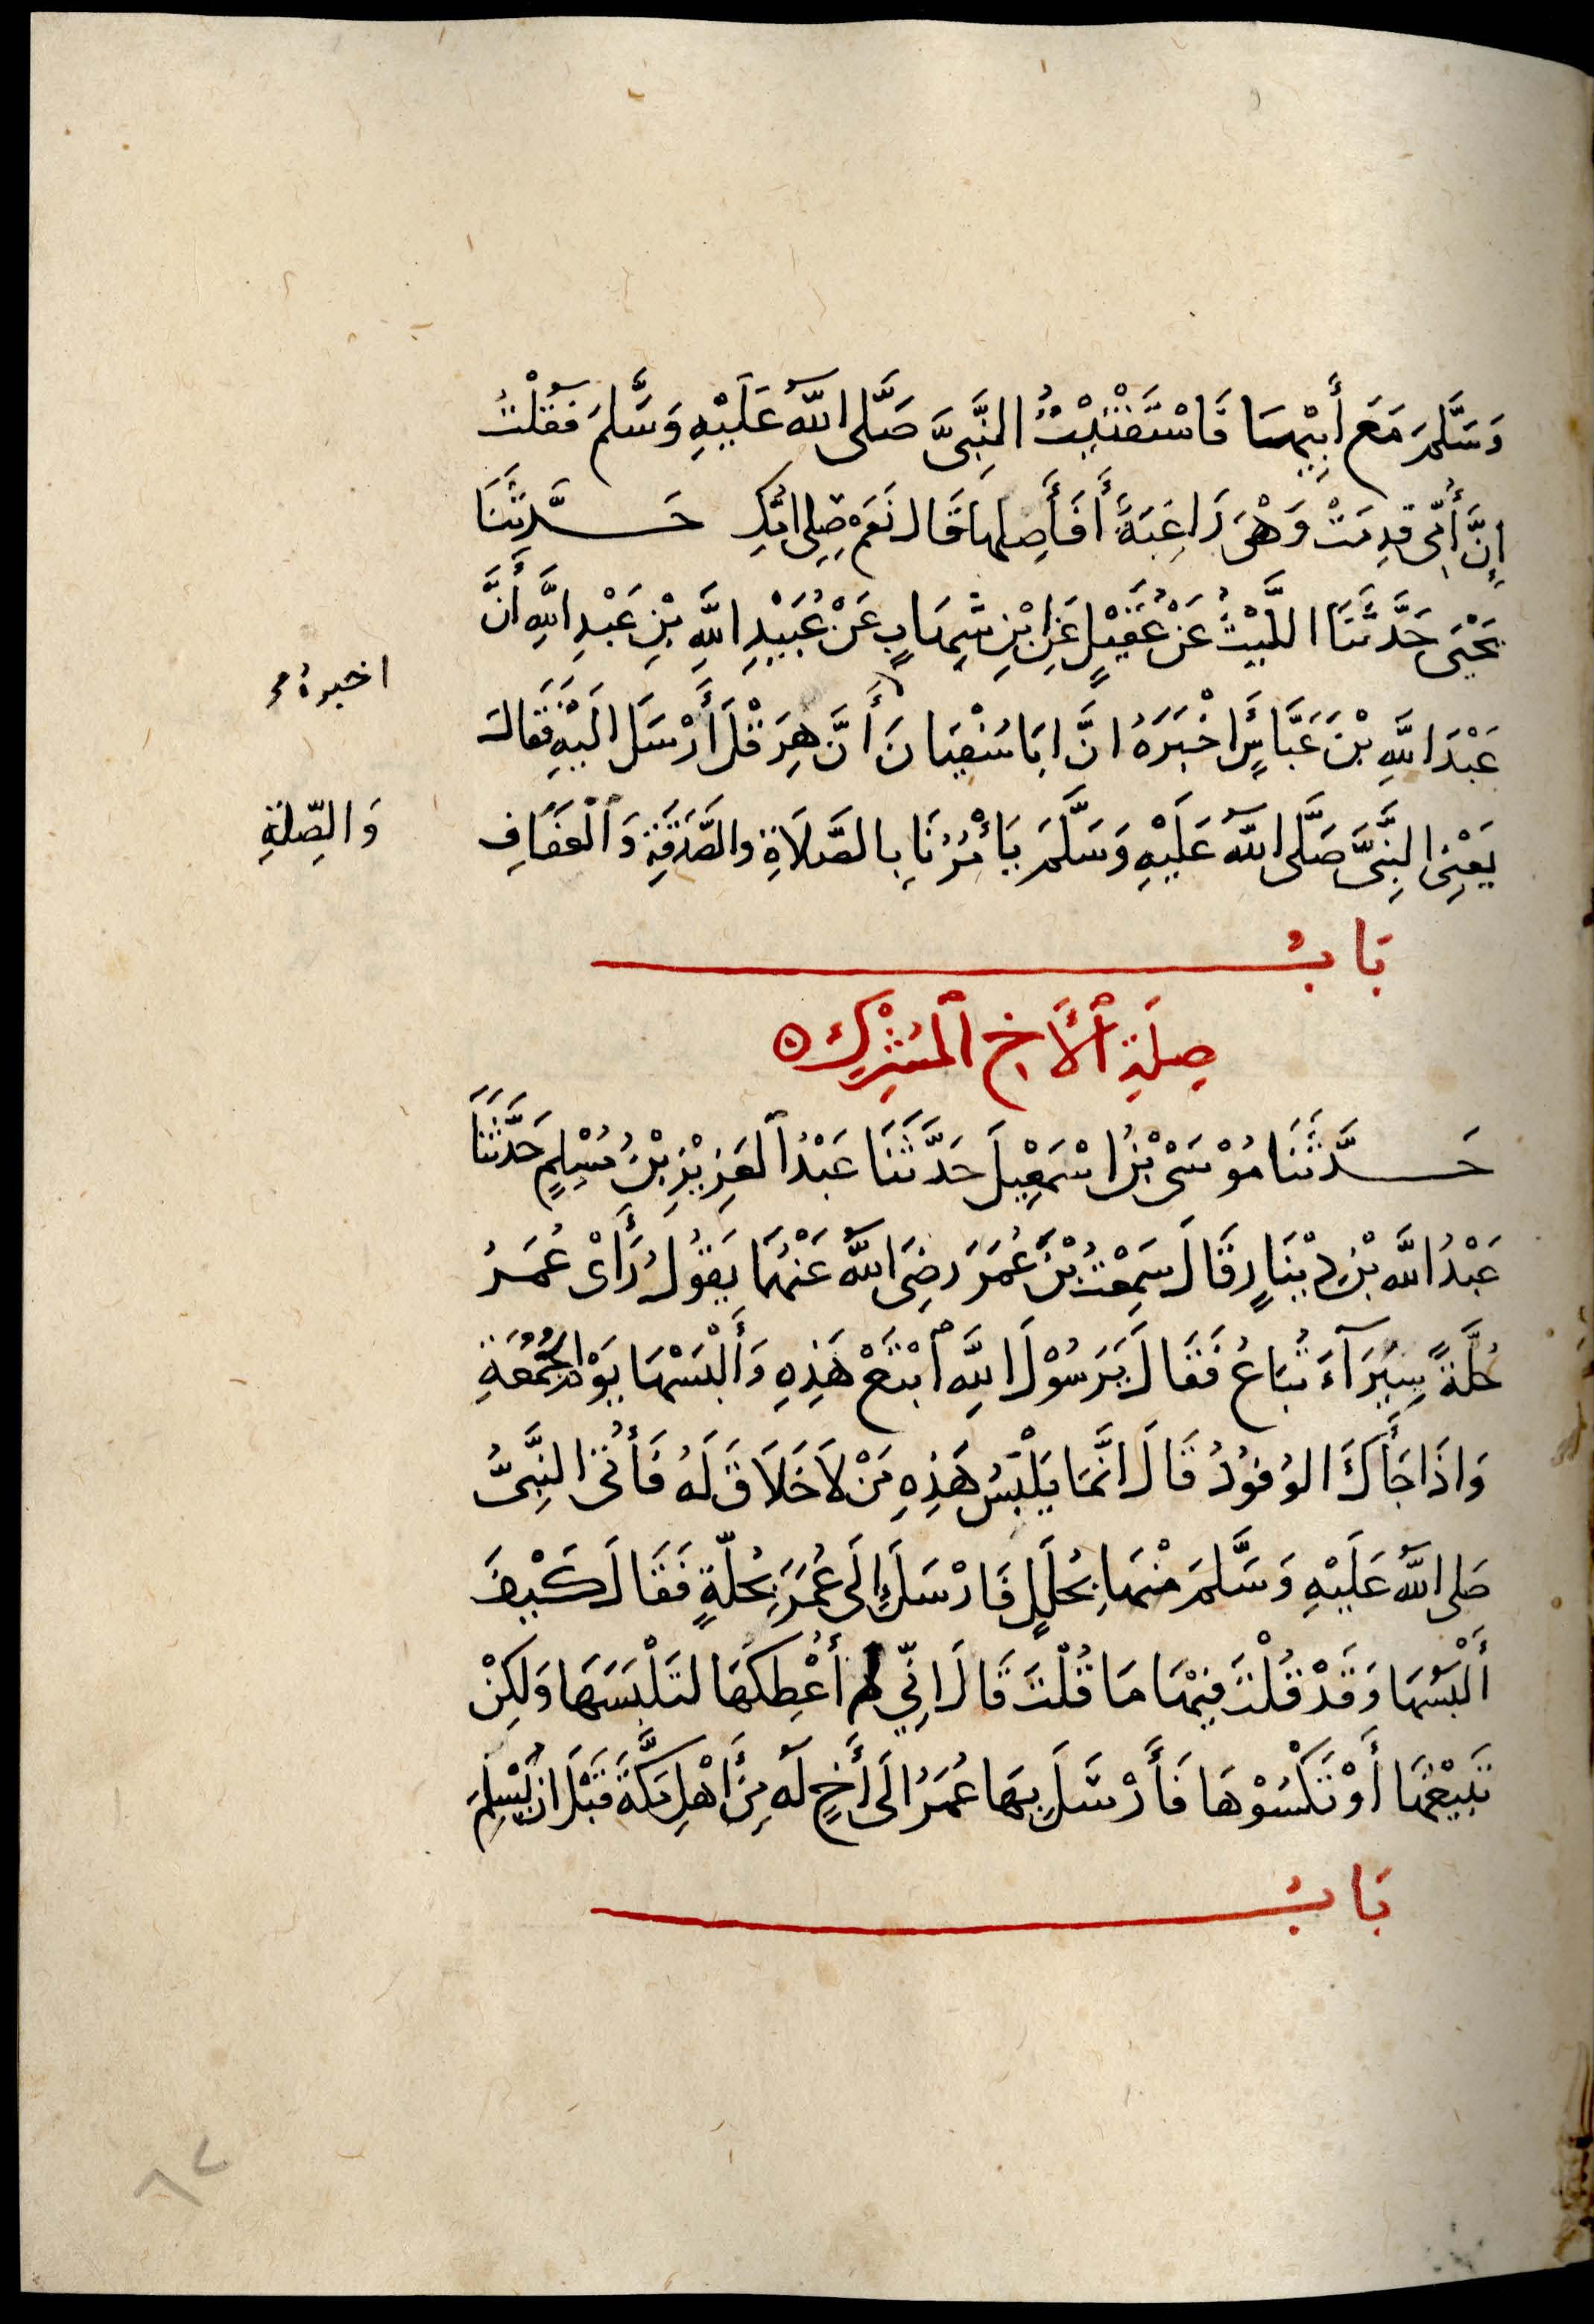 وَسَلَّمَ مَعَ أَبِيْهَا فَاسْتَفْتَيْتُ النَّبِىَّ صَلَّى اللّٰهُ عَلَيْهِ وَسَلَّمَ فَقُلْتُ
إِنَّ أُمِّى قَدِمَتْ وَهْىَ رَاغِبَةٌ أَفَأَصِلُهَا قَالَ نَعَمْ صِلِى امَّكِ حَدَّثَنَا
يَحْيَى حَدَّثَنَا اللَّيْثُ عَنْ عُقَيْلٍ عَنِ ابْنِ شِهَابٍ عَنْ عُبَيْدِ اللّٰهِ بْنِ عَبْدِ اللّٰهِ أَنَّ
عَبْدَ اللّٰهِ بْنَ عَبَّاسٍ أَخْبَرَهُ انَّ ابَا سُفْيَانَ أَنَّ هِرَقْلَ أَرْسَلَ الَيْهِ فَقَالَ
اخبره
يَعْنِى النَّبِىَّ صَلَّى اللّٰهُ عَلَيْهِ وَسَلَّمَ يَأْمُرُنَا بِالصَّلَاةِ والصَّدَقَةِ وَٱلْعَفَافِ
وَالصِّلَةِ
بَابُ
صِلَةِ ٱلْأَخِ ٱلْمُشْرِكِ
حَدَّثَنَا مُوْسَى بْنُ اسْمٰعِيْلَ حَدَّثَنَا عَبْدُ ٱلعَزِيْزِ بْنُ مُسْلِمٍ حَدَّثَنَا
عَبْدُ اللّٰهِ بْنُ دِيْنَارٍ قَالَ سَمِعْتُ بْنَ عُمَرَ رَضِىَ اللّٰهُ عَنْهُمَا يَقُوْلُ رَأَىْ عُمَرُ
حُلَّةً سِيَرَآءَ تُبَاعُ فَقَالَ يَرَسُوْلَ اللّٰهِ ٱبْتَعْ هَذِهِ وَأَلْبَسْهَا يَوْمَ الْجُمُعَةِ
وَاذَا جَأَكَ الوُفُوْدُ قَالَ انَّمَا يَلْبَسُ هَذِهِ مَنْ لَا خَلَاقَ لَهُ فَأُتِىَ النَّبِىُّ
صَلى اللّٰهُ عَلَيْهِ وَسَلَّمَ مِنْهَا بِحُلَلٍ فَارْسَلَ إِلَى عُمَرَ بِحُلَّةٍ فَقَالَ كَيْفَ
أَلْبَسُهَا وَقَدْ قُلْتَ فِيْهَا مَا قُلْتَ قَالَ انِّي لَمْ أُعْطِكَهَا لتَلْبَسَهَا وَلَكِنْ
تَبِيْعُهَا أَوْ تَكْسُوْهَا فَأَرْسَلَ بِهَا عُمَرُ الَى أَخٍ لَهُ مِنْ أَهْلِ مَكَّةَ قَبْلَ ان يُسْلِمَ
بَابُ
٦٧